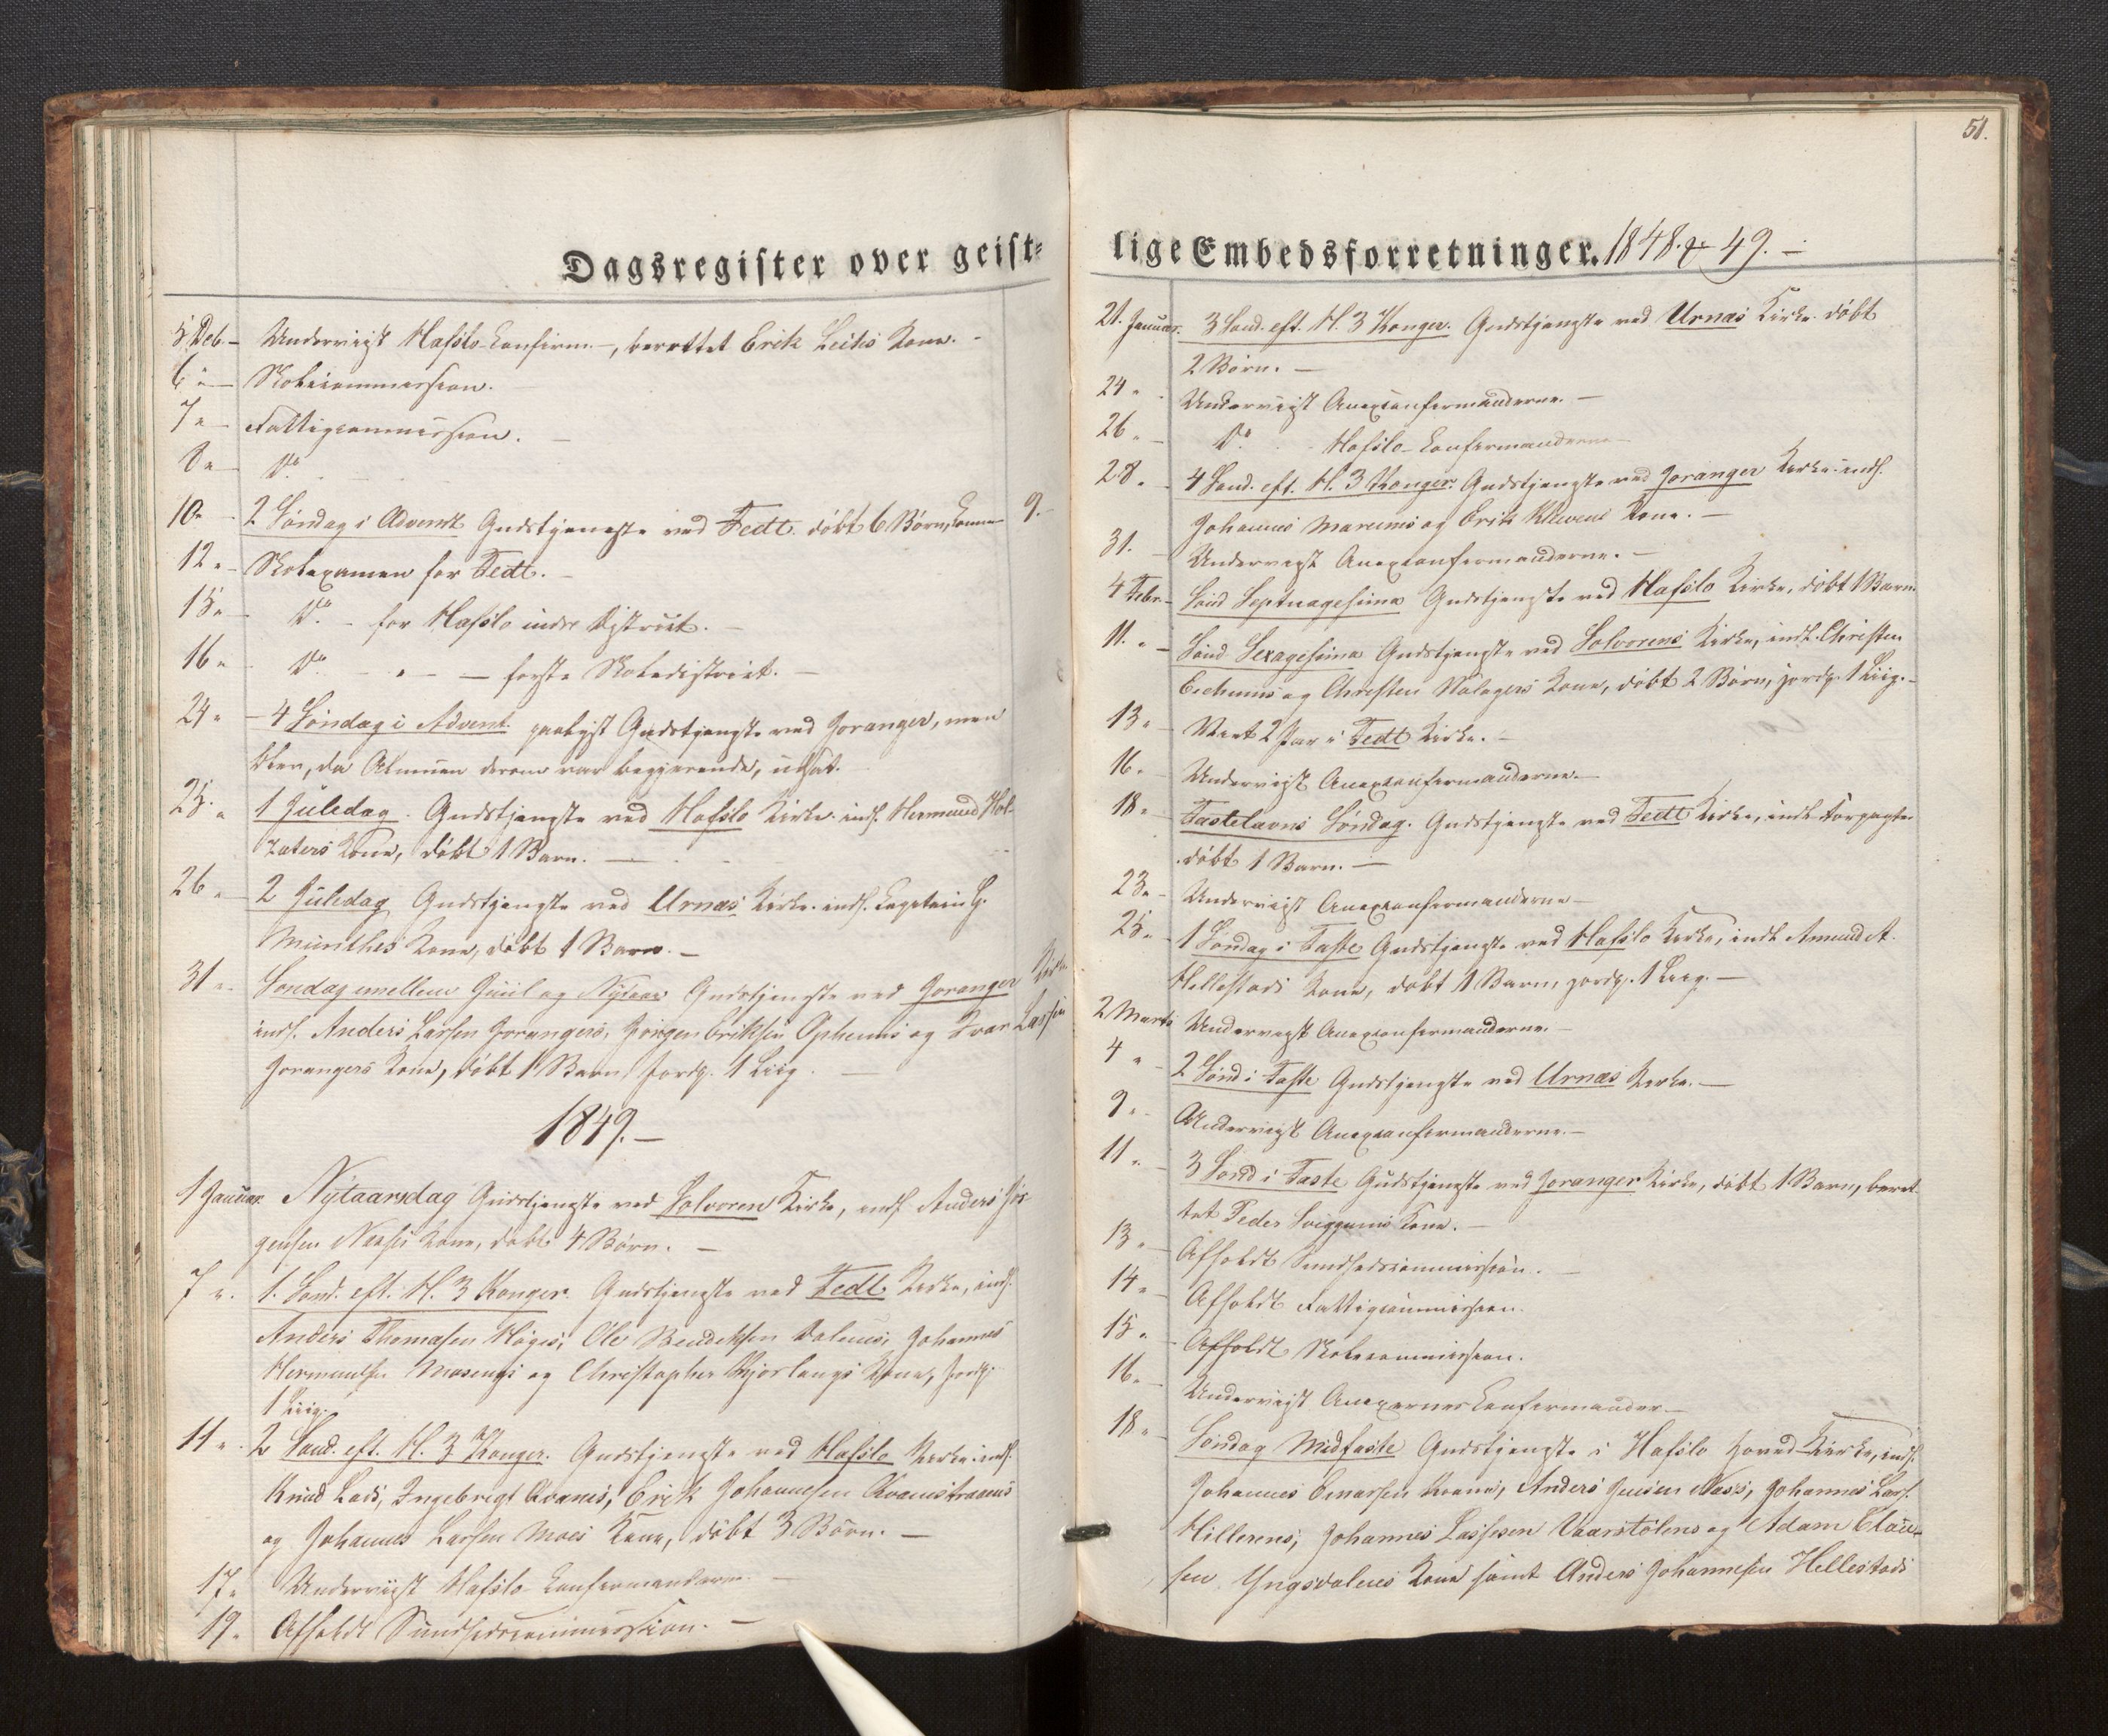 Dagsregister over geist-
5 Deb. Underviist Hafslo-Confirm., berettet Erik Leitis Kone.
6 " Skolecommission.
7 " Fattigcommission.
8 " Do
10 " 2 Søndag i Advent Gudstjeneste ved Fedt. døbt 6 Børn, 9.
12 " Skolexamen for Fedt.
15 " Do - for Hafslo indre District.
16 " Do - " - første Skoledistrict.
24 " 4 Søndag i Advent. Gudstjeneste ved Joranger, men
da Almuen derom var begjerende, udsat.
25 " 1 Juledag. Gudstjeneste ved Hafslo Kirke. indl. Hermund Hol-
Kone, døbt 1 Barn.
26 " 2 Juledag Gudstjeneste ved Urnæs Kirke. indl. Capitain G.
Münthes Kone, døbt 1 Barn.
31 " Søndag mellem Juul og Nytaar Gudstjeneste ved Joranger Kirke
indl. Anders Larsen Jorangers, Jørgen Eriksen Opheims og Ivar Lassen
Jorangers Kone, døbt 1 Barn, jordp. 1 Liig.
1849.
1 Januar Nytaarsdag Gudstjeneste ved Solvoren Kirke, indl. Anders Jør-
gensen Næsses Kone, døbt 4 Børn.
7 " 1. Sønd. eft. H. 3 Konger. Gudstjeneste ved Fedt Kirke, indl.
Anders Thomasen Høges, Ole Bendiksen Dalens, Johannes
Hermundsen Mosengs og Christopher Kone, jordp.
1 Liig.
11 " 2 Sønd. eft. H. 3 Konger. Gudstjeneste ved Hafslo Kirke. indl.
Knud Lads, Ingebrigt Qvams, Erik Johannesen Qvamstrands
og Johannes Larsen Moes Kone, døbt 3 Børn.
17 " Underviist Hafslo Confirmanderne.
19 " Afholdt Sundhedscommission.
lige Embedsforretninger. 1848 & 49.
51.
21. Januar. 3 Sønd. eft. H. 3 Konger. Gudstjeneste ved Urnæs Kirke. døbt
2 Børn.
24 " Underviist Anexconfirmanderne.
26 " Do Hafslo-Confirmanderne
28 " 4 Sønd. eft. H. 3 Konger. Gudstjeneste ved Joranger Kirke. indl.
Johannes Mareims og Erik Klevens Kone.
31. Underviist Anexconfirmanderne.
4 Febr. Sønd Septuagesima Gudstjeneste ved Hafslo Kirke, døbt 1 Barn.
11. " Sønd Sexagesima Gudstjeneste ved Solvorens Kirke, indl. Christen
og Christen Kone, døbt 2 Børn, jordp. 1 Liig.
13 " Viet 2 Par i Fedt Kirke.
16 " Underviist Anexconfirmanderne.
18 " Fastelavns Søndag. Gudstjeneste ved Fedt Kirke, indl.
døbt 1 Barn.
23 " Underviist Anexconfirmanderne
25 " 1 Søndag i Faste Gudstjeneste ved Hafslo Kirke, indl. Amund A.
Hillestads Kone, døbt 1 Barn, jordp. 1 Liig.
2 Marts Underviist Anexconfirmanderne.
4 " 2 Sønd i Faste Gudstjeneste ved Urnæs Kirke.
9 " Underviist Anexconfirmanderne.
11 " 3 Sønd i Faste Gudstjeneste ved Joranger Kirke, døbt 1 Barn, beret-
tet Peder Sviggums Kone.
13 " Afholdt Sundhedscommission.
14 " Afholdt Fattigcommission.
15 " Afholdt Skolecommission.
16 " Underviist Anexernes Confirmander.
18 " Søndag Midfaste Gudstjeneste i Hafslo Hoved Kirke, indl.
Johannes Einarsen Anders Jensen Næss, Johannes Lars.
Hillerens, Johannes Lassesen Vaarstolens og Adam Clau-
sen Yngsdalens Kone samt Anders Johannesen Hellestads